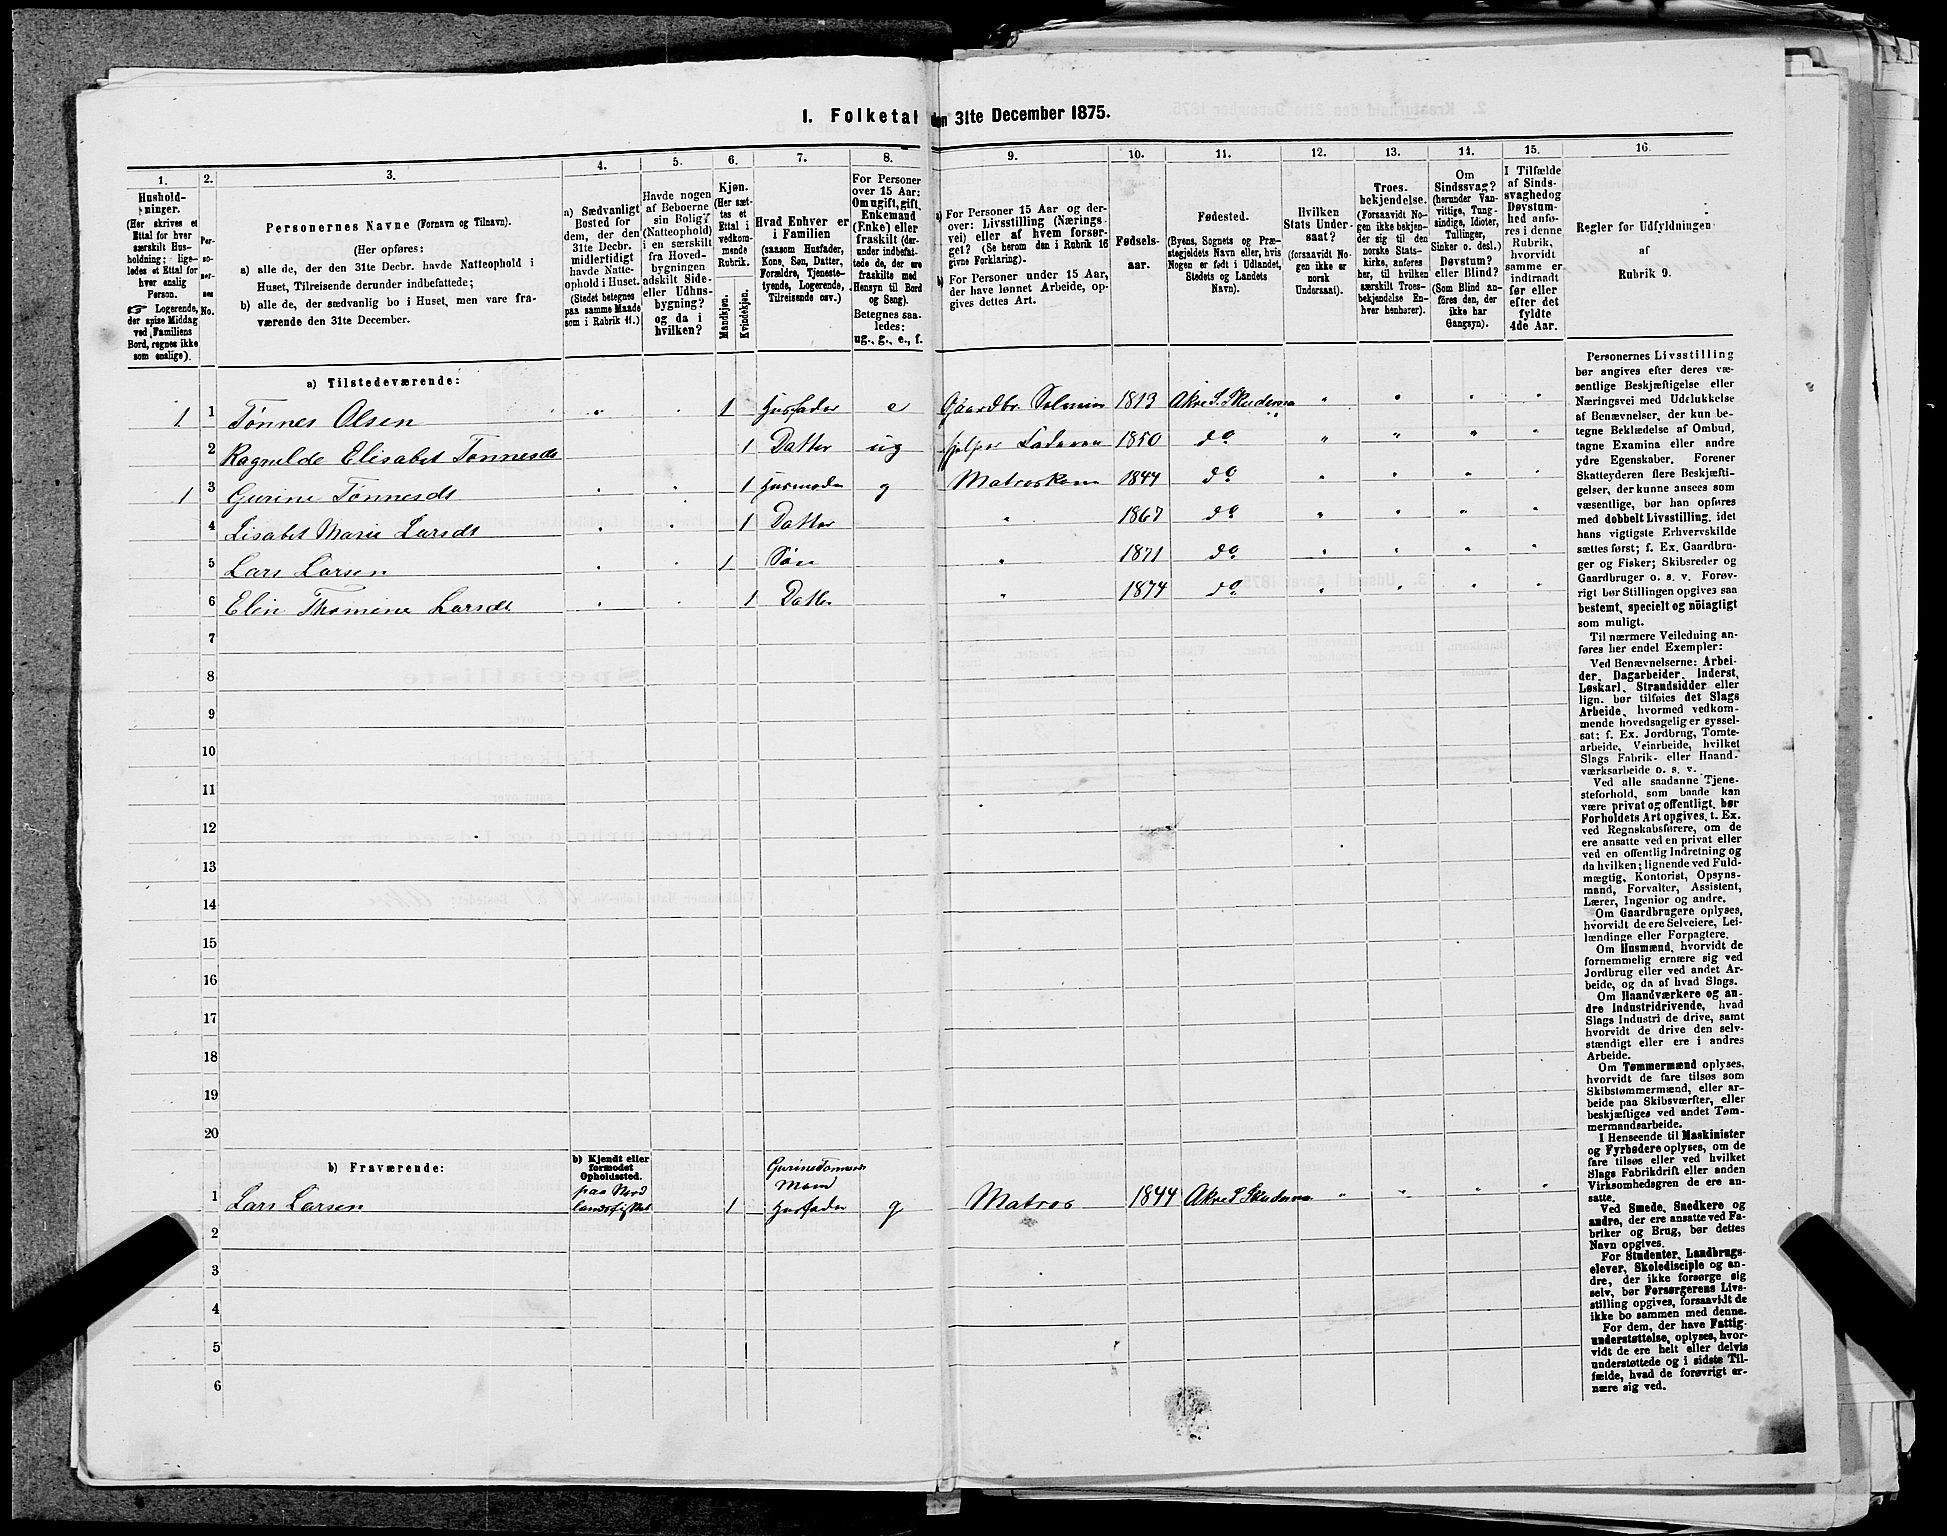 1. Folketal den 31te December 1875.
1. 2. 3. 4. 5. 6. 7. 8. 9. 10. 11. 12. 13. 14. 15. 16.
Hushold-
ninger.
(Her skrives et
Ettal for hver
særskilt Hus-
holdning; lige-
ledes et Ettal for
hver enslig
Person.
☞ Logerende,
der spise Middag
ved Familiens
Bord, regnes ikke
som enslige).
Per-
so-
ner-
nes
No.
Personernes Navne (Fornavn og Tilnavn).
(Her opføres:
a) alle de, der den 31te Decbr. havde Natteophold i
Huset, Tilreisende derunder indbefattede;
b) alle de, der sædvanlig bo i Huset, men vare fra-
værende den 31te December.
a) Sædvanligt
Bosted for
dem, der den
31te Decbr.
midlertidigt
havde Natte-
ophold i Huset.
(Stedet betegnes
paa samme Maade
som i Rubrik 11.)
Havde nogen
af Beboerne
sin Bolig
(Natteophold)
i en særskilt
fra Hoved-
bygningen
adskilt Side-
eller Udhus-
bygning?
og da i
hvilken?
Kjøn.
(Her sæt-
tes et
Ettal i
vedkom-
mende
Rubrik.
Mandkjøn.
Kvindekjøn.
Hvad Enhver er
i Familien
(saasom Husfader,
Kone, Søn, Datter,
Forældre, Tjeneste-
tyende, Logerende,
Tilreisende osv.)
For Personer
over 15 Aar:
Om ugift, gift,
Enkemand
(Enke) eller
fraskilt (der-
under indbefat-
tede de, der ere
fraskilte med
Hensyn til Bord
og Seng).
Betegnes saa-
ledes:
ug., g., e., f.
a) For Personer 15 Aar og der-
over: Livsstilling (Nærings-
vei) eller af hvem forsør-
get? (Se herom den i Rubrik 16
givne Forklaring).
b) For Personer under 15 Aar,
der have lønnet Arbeide, op-
gives dettes Art.
Fødsels-
aar.
Fødested.
(Byens, Sognets og Præ-
stegjeldets Navn eller, hvis
Nogen er født i Udlandet,
Stedets og Landets
Navn).
Hvilken
Stats Under-
saat?
(forsaavidt No-
gen ikke er
norsk
Undersaat).
Troes-
bekjendelse.
(Forsaavidt No-
gen ikke bekjen-
der sig til den
norske Stats-
kirke, anføres
her, til hvilken
særskilt Troes-
bekjendelse En-
hver henhører).
Om
Sindssvag?
(herunder Van-
vittige, Tung-
sindige, Idioter,
Tullinger,
Sinker o. desl.)
Døvstum?
eller Blind?
(Som Blind an-
føres den, der
ikke har
Gangsyn).
I Tilfælde
af Sinds-
svaghedog
Døvstum-
hed anfø-
res i denne
Rubrik,
hvorvidt
samme er
indtraadt
før eller
efter det
fyldte
4de Aar.
Regler for Udfyldningen
af
Rubrik 9.
a) Tilstedeværende:
1 1 Tønnes Olsen " " 1 Husfader e Gaardbr. 1813 Akre S. " " " "
2 Ragnelde Elisabet Tønnesdt 1 Datter ug 1850 do " " " "
1 3 Gurine Tønnesdt " " 1 Husmoder g Matroskone 1844 do " " " "
4 Lisabet Marie Larsdt " " 1 Datter " 1867 do " " " "
5 Lars Larsen " " 1 Søn " 1871 do " " " "
6 Elin Thomine Larsdt " " 1 Datter " 1874 do " " " "
7
8
9
10
11
12
13
14
15
16
17
18
19
20
b) Fraværende:
b) Kjendt eller
formodet
Opholdssted.
Gurine Tønnesdt
Mand
1 Lars Larsen paa Nord 1 Husfader g Matros 1844 Akre S " " " "
landsfisket
2
3
4
5
6
Personernes Livsstilling
bør angives efter deres væ-
sentlige Beskjæftigelse eller
Næringsvei med Udelukkelse
af Benævnelser, der kun be-
tegne Beklædelse af Ombud,
tagne Examina eller andre
ydre Egenskaber. Forener
Skatteyderen flere Beskjæfti-
gelser, der kunne ansees som
væsentlige, bør han opføres
med dobbelt Livsstilling, idet
hans vigtigste Erhvervskilde
sættes først; f. Ex. Gaardbru-
ger og Fisker; Skibsreder og
Gaardbruger o. s. v. Forøv-
rigt bør Stillingen opgives saa
bestemt, specielt og nöiagtigt
som muligt.
Til nærmere Veiledning an-
føres her endel Exempler:
Ved Benævnelserne: Arbei-
der, Dagarbeider, Inderst,
Løskarl, Strandsidder eller
lign. bør tilføies det Slags
Arbeide, hvormed vedkom-
mende hovedsagelig er syssel-
sat; f. Ex. Jordbrug, Tomte-
arbeide, Veiarbeide, hvilket
Slags Fabrik- eller Haand-
værksarbeide o. s. v.
Ved alle saadanne Tjene-
steforhold, som baade kan
være privat og offentligt, bør
Forholdets Art opgives, t. Ex.
ved Regnskabsførere, om de
ere ansatte ved en privat eller
ved en offentlig Indretning og
da hvilken; lignende ved Fuld-
mægtig, Kontorist, Opsyns-
mand, Forvalter, Assistent,
Lærer, Ingeniør og andre.
Om Gaardbrugere oplyses,
hvorvidt de ere Selveiere, Lei-
lændinge eller Forpagtere.
Om Husmænd, hvorvidt de
fornemmelig ernære sig ved
Jordbrug eller ved andet Ar-
beide, og da af hvad Slags.
Om Haandværkere og an-
dre Industridrivende, hvad
Slags Industri de drive, samt
hvorvidt de drive den selv-
stændigt eller ere i andres
Arbeide.
Om Tømmermænd oplyses,
hvorvidt de fare tilsøs som
Skibstømmermænd, eller ar-
beide paa Skibsværfter, eller
beskjæftiges ved andet Tøm-
mermandsarbeide.
I Henseende til Maskinister
og Fyrbødere oplyses, om de
fare tilsøs eller ved hvilket
Slags Fabrikdrift eller anden
Virksomhedsgren de ere an-
satte.
Ved Smede, Snedkere og
andre, der ere ansatte ved Fa-
briker og Brug, bør dettes
Navn opgives.
For Studenter, Landbrugs-
elever, Skoledisciple og an-
dre, der ikke forsørge sig
selv, bør Forsørgerens Livs-
stilling opgives, forsaavidt de
ikke bo sammen med denne.
For dem, der have Fattig-
understøttelse, oplyses, hvor-
vidt de ere helt eller delvis
understøttede og i sidste Til-
fælde, hvad de forøvrigt er-
nære sig ved.